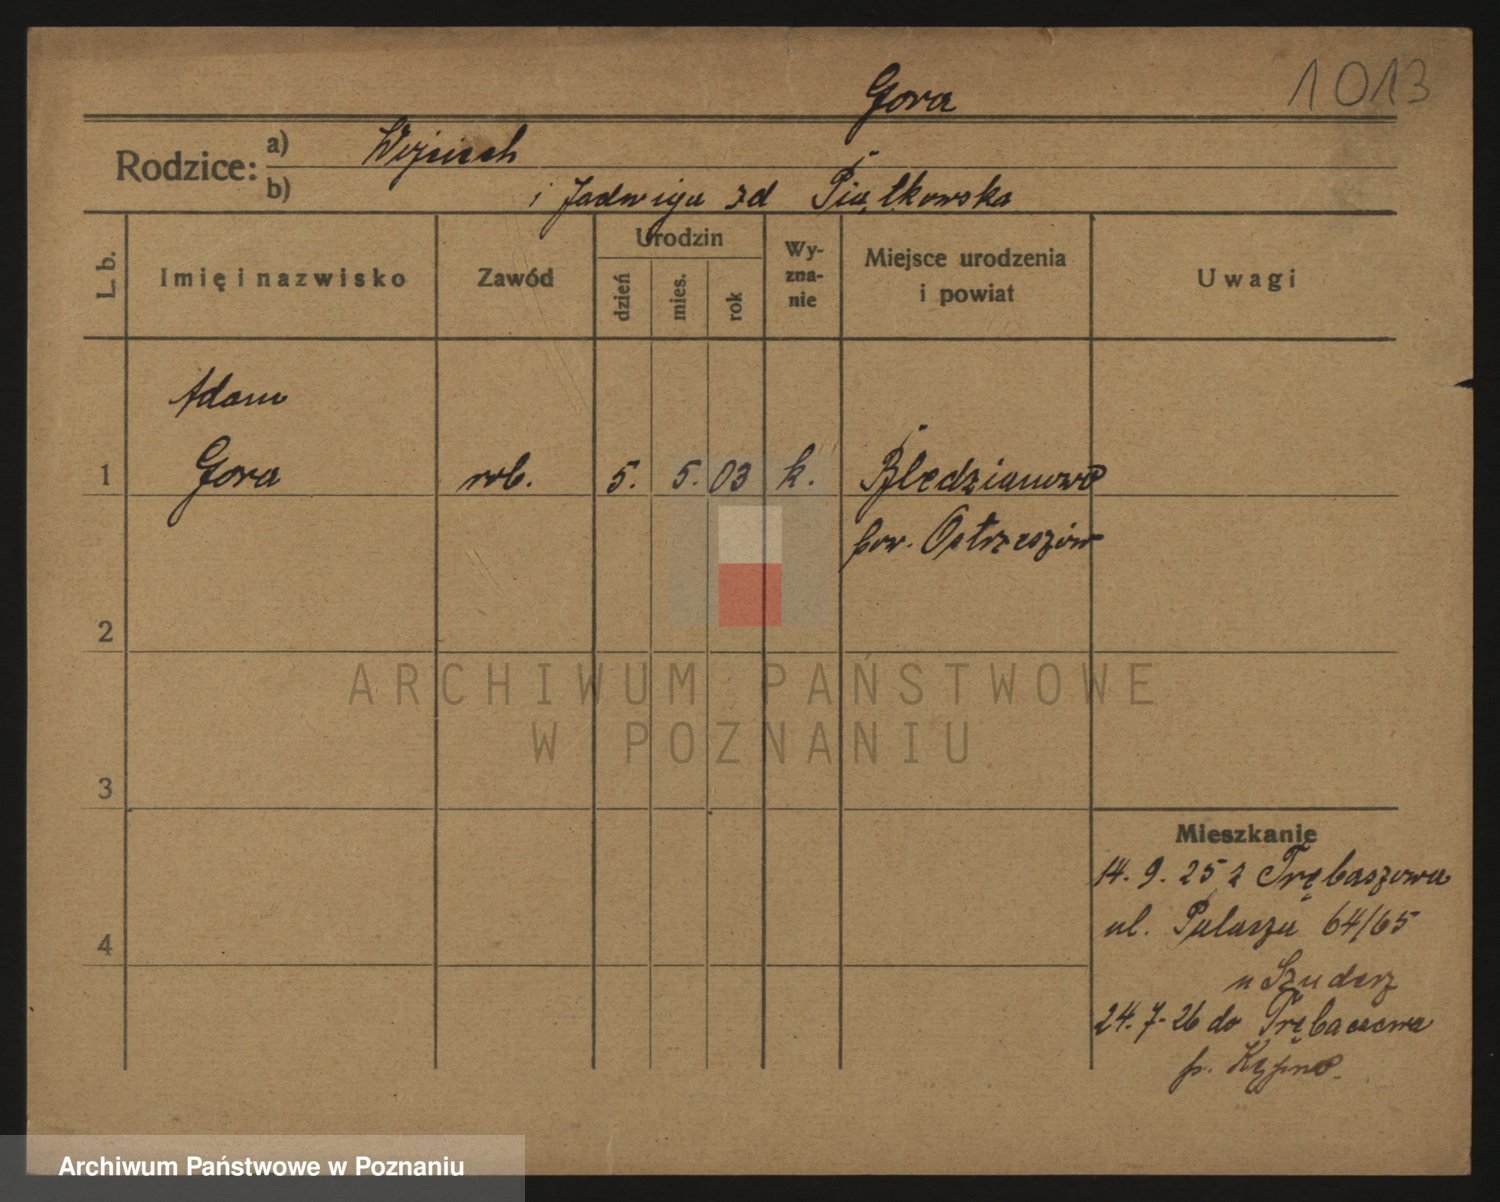 1013
Gora
Rodzice: a) Wojciech
b) i Jadwiga zd Piątkowska
L. b.
Imię i nazwisko
Zawód
Urodzin
dzień
mies.
rok
Wy-
zna-
nie
Miejsce urodzenia
i powiat
Uwagi
Adam
1 Gora rob. 5. 5. 03 k. Błedzianowo
pow. Ostrzeszów
2
ARCHIWUM PAŃSTWOWE
W POZNANIU
3
Mieszkanie
14. 9. 25 z Trębaszowa
ul. Palacza 64/65
4
u Szuderz
24. 7. 26 do Trębaczowa
p. Kępno.
Archiwum Państwowe w Poznaniu